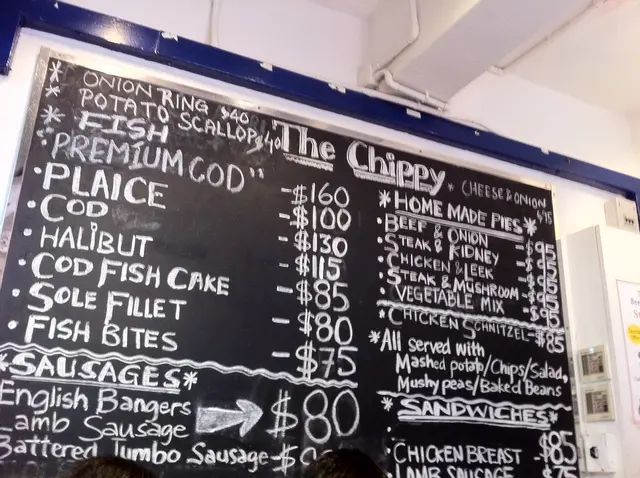 * ONION RING $40
* POTATO SCALLOP $40
* FISH
The Chippy
• PREMIUM COD" -$160
• PLAICE -$100
• COD -$130
• HALIBUT -$115
• COD FISH CAKE -$85
• SOLE FILLET -$80
• FISH BITES -$75
*SAUSAGES*
English Bangers
Lamb Sausage → $80
Battered Jumbo Sausage-
* CHEESE & ONION $95
*HOME MADE PIES*
• BEEF & ONION -$95
• STEAK & KIDNEY -$95
• CHICKEN & LEEK -$95
• STEAK & MUSHROOM -$95
• VEGETABLE MIX -$95
• CHICKEN SCHNITZEL -$85
*All served with
Mashed potato/Chips/Salad,
Mushy peas/Baked Beans
*SANDWICHES*
• CHICKEN BREAST $85
• LAMB SAUSAGE $75